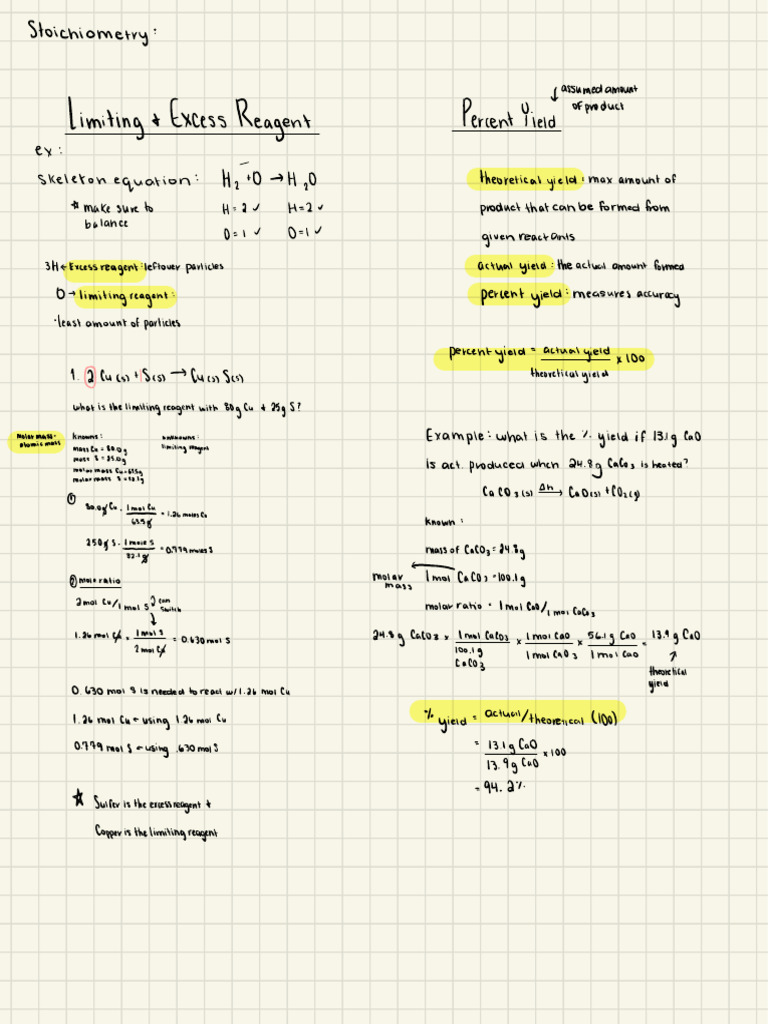 Stoichiometry:
Limiting + Excess Reagent
ex:
skeleton equation: H2 + O → H2O
* make sure to
balance
H = 2 ✓ H = 2 ✓
O = 1 ✓ O = 1 ✓
3H ← Excess reagent: leftover particles
O → limiting reagent:
· least amount of particles
1. 2 Cu(s) + S(s) → Cu(s) S(s)
what is the limiting reagent with 80g Cu + 25g S?
molar mass=
atomic mass
knowns:
mass Cu = 80.0g
mass S = 25.0g
molar mass Cu = 63.5g
molar mass S = 32.1g
unknowns:
limiting reagent
①
80.0g Cu · 1 mol Cu / 63.5g = 1.26 moles Cu
25.0g S · 1 mole S / 32.1g = 0.779 moles S
② mole ratio
2 mol Cu / 1 mol S
can
switch
1.26 mol Cu = 1 mol S / 2 mol Cu = 0.630 mol S
0.630 mol S is needed to react w/ 1.26 mol Cu
1.26 mol Cu ← using 1.26 mol Cu
0.779 mol S ← using .630 mol S
☆ Sulfer is the excess reagent +
Copper is the limiting reagent
Percent Yield
assumed amount
of product
theoretical yield: max amount of
product that can be formed from
given reactants
actual yield: the actual amount formed
percent yield: measures accuracy
percent yield = actual yield / theoretical yield × 100
Example: what is the % yield if 13.1g CaO
is act. produced when 24.8g CaCO3 is heated?
CaCO3(s) Δh → CaO(s) + CO2(g)
known:
mass of CaCO3 = 24.8g
molar
mass
1 mol CaCO3 = 100.1g
molar ratio = 1 mol CaO / 1 mol CaCO3
24.8g CaCO3 × 1 mol CaCO3 / 100.1g CaCO3 × 1 mol CaO / 1 mol CaO3 × 56.1g CaO / 1 mol CaO = 13.9g CaO
theoretical
yield
% yield = actual/theoretical (100)
= 13.1g CaO / 13.9g CaO × 100
= 94.2%